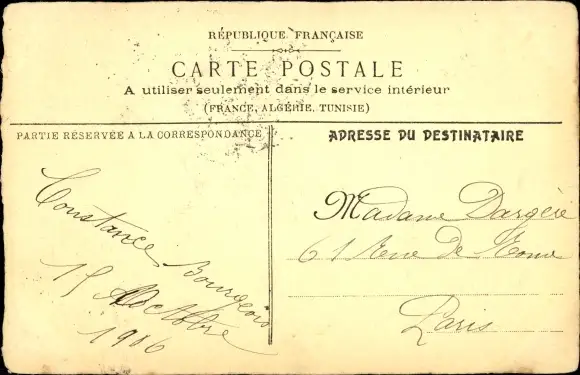 RÉPUBLIQUE FRANÇAISE
CARTE POSTALE
A utiliser seulement dans le service intérieur
(FRANCE, ALGÉRIE, TUNISIE)
PARTIE RÉSERVÉE A LA CORRESPONDANCE
ADRESSE DU DESTINATAIRE
Constance Bourgeois
15 Octobre
1906
Madame Dargère
61 Rue de Rome
Paris